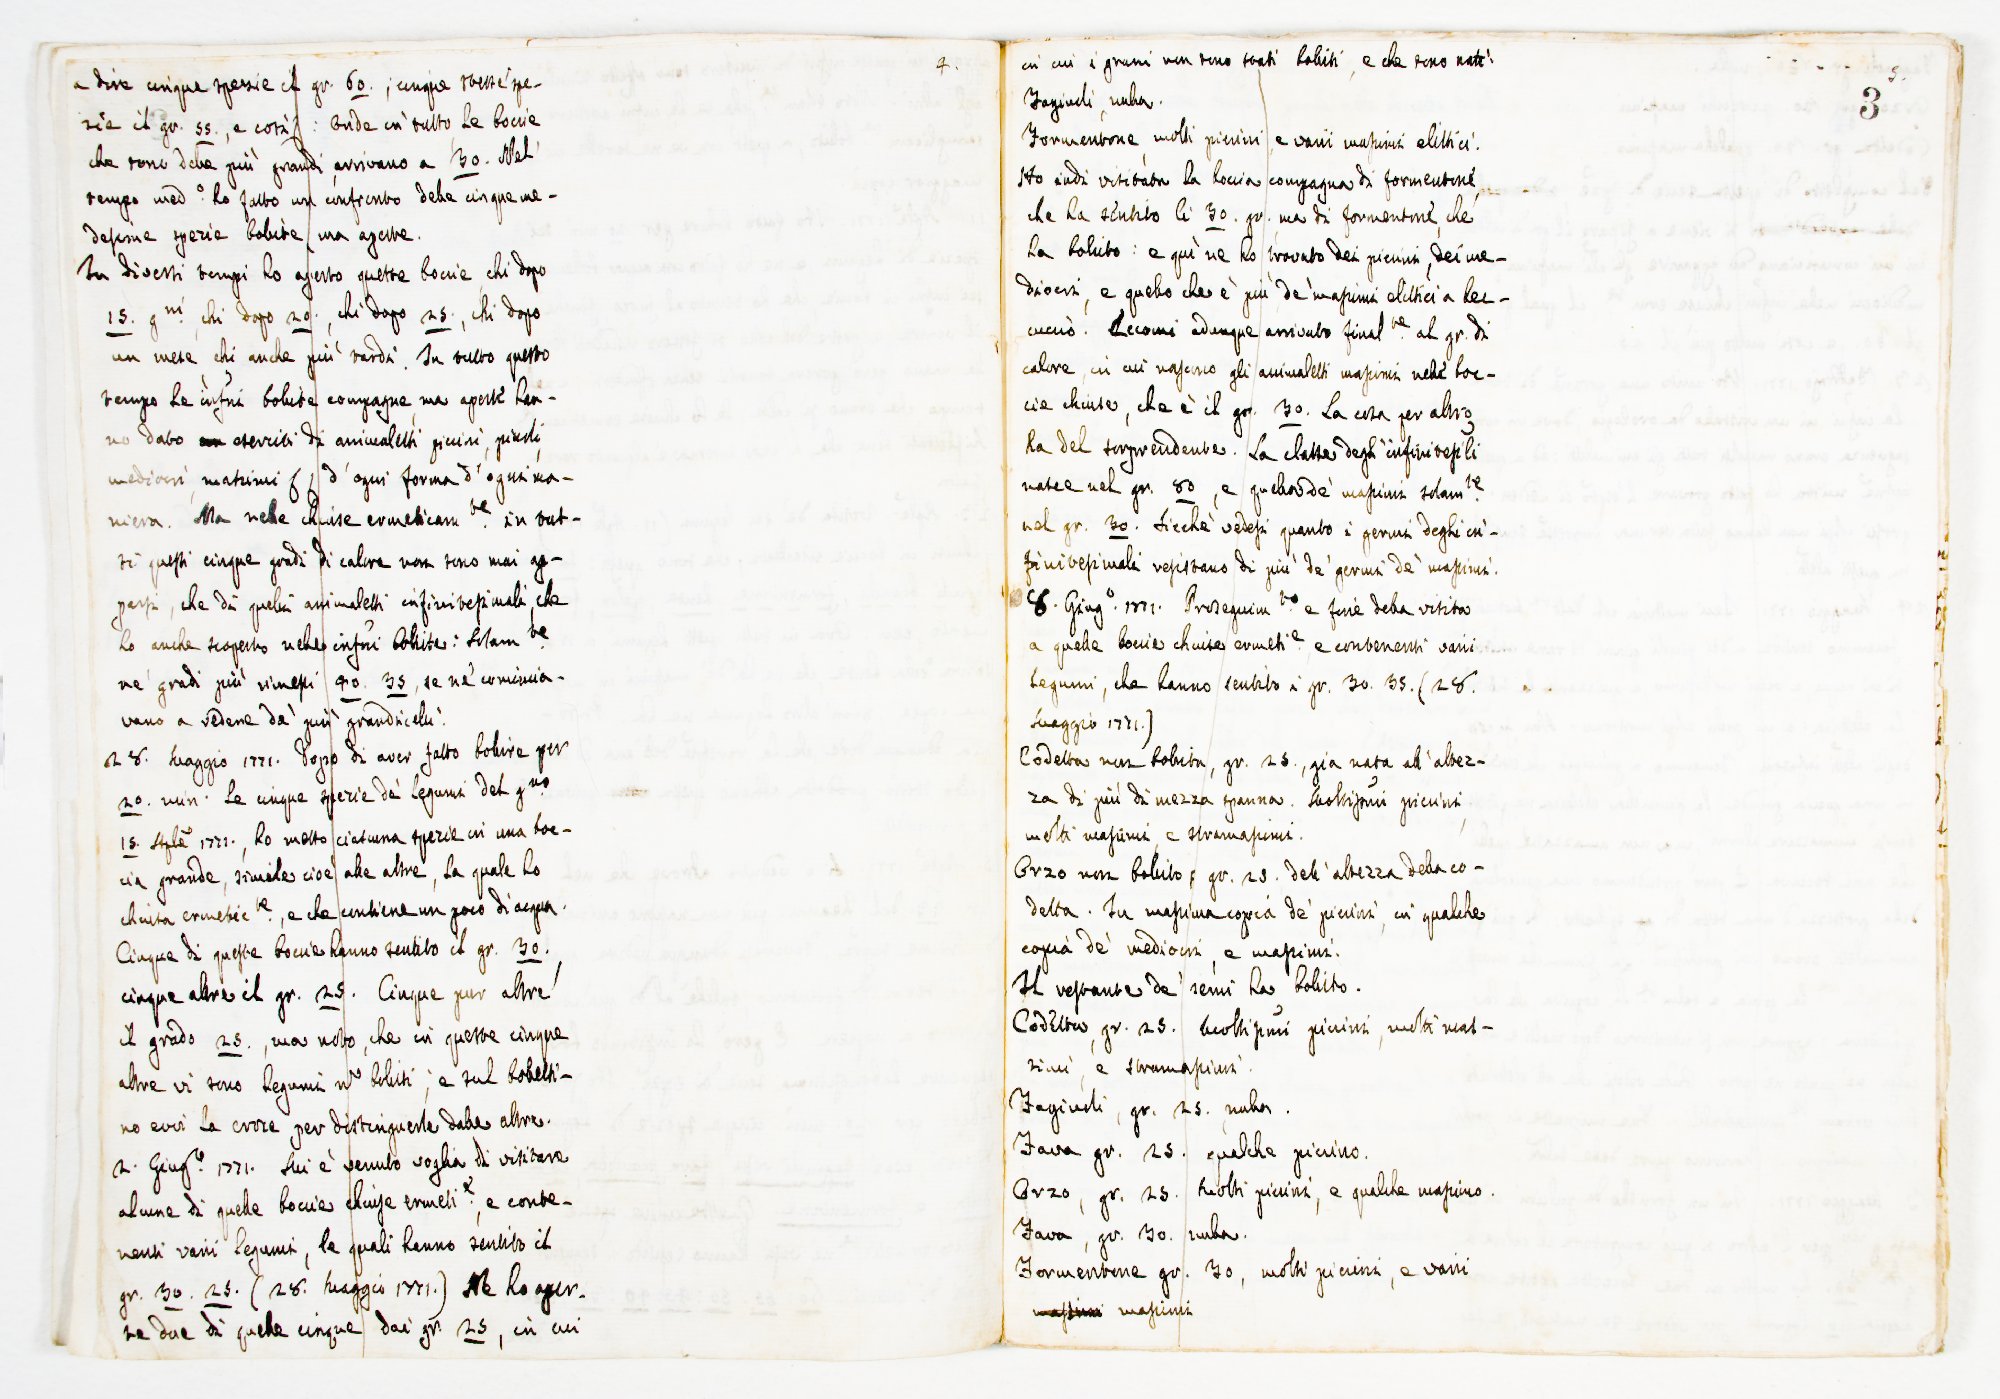 4.
a dire cinque spezie il gr. 60. ; cinque stesse spe-
zie il gr. 55., e così : onde in tutto le boccie
che sono delle più grandi arrivano a 30. Nel
tempo med.o ho fatto un confronto delle cinque me-
desime spezie bollite, ma aperte.
In diversi tempi ho aperto queste boccie, chi dopo
15. gni, chi dopo 20., chi dopo 25., chi dopo
un mese, chi anche più tardi. In tutto questo
tempo le infni bollite compagne, ma aperte han-
no dato eserciti di animaletti piccini, piccoli,
mediocri, massimi, d'ogni forma d'ogni ma-
niera. Ma nelle chiuse ermeticam.te in tut-
ti questi cinque gradi di calore non sono mai ap-
parsi, che di quelli animaletti infinitesimali, che
ho anche scoperto nelle infni bollite: Solam.te
ne' gradi più rimessi 40. 35, se ne comincia-
vano a vedere de' più grandicelli.
28. Maggio 1771. Dopo di aver fatto bollire per
20. min. le cinque spezie de' legumi del gno
15. 1771., ho messo ciascuna spezie in una boc-
cia grande, simile cioè alle altre, la quale ho
chiusa ermetic.te, e che contiene un poco di acqua.
Cinque di queste boccie hanno sentito il gr. 30.,
cinque altre il gr. 25. Cinque pur altre
il grado 25., ma noto, che in queste cinque
altre vi sono legumi no bolliti, e sul bolletti-
no evvi la croce per distinguerle dalle altre.
2. Giug.o 1771. Mi è venuto voglia di visitare
alcune di quelle boccie chiuse ermeti.e, e conte-
nenti varii legumi, le quali hanno sentito il
gr. 30. 25. (28. Maggio 1771.) Ne ho aper-
te due di quelle cinque dai gr. 25, in cui
5.
3
in cui i grani non sono stati bolliti, e che sono nati.
Fagiuoli, nulla.
Formentone molti piccini, e varii massimi elittici.
Ho indi visitata la boccia compagna di formentone,
che ha sentito li 30. gr. ma di formentone, che
ha bollito: e qui ne ho trovato dei piccini, dei me-
diocri, e quello che è più de' massimi elittici a bec-
cuccio. Eccomi adunque arrivato final.te al gr. di
calore, in cui nascono gli animaletti massimi nelle boc-
cie chiuse, che è il gr. 30. La cosa per altro
ha del sorprendente. La classe degli infinitesimi
nasce nel gr. 80, e quella de' massimi solam.te
nel gr. 30. Sicchè vedesi quanto i germi degli in-
finitesimali resistano di più de' germi de' massimi.
8. Giug.o 1771. Proseguim.to e fine della visita
a quelle boccie chiuse ermeti.e e contenenti varii
legumi, che hanno sentito i gr. 30. 35. (28.
Maggio 1771.)
Codetta non bollita, gr. 25., gia nata all'altez-
za di più di mezza spanna. Moltissmi piccini,
molti massimi, e stramassimi.
Orzo non bollito, gr. 25. dell'altezza della co-
detta. In massima copia de' piccini, in qualche
copia de' mediocri, e massimi.
Il restante de' semi ha bollito.
Codetta, gr. 25. Moltissmi piccini, molti mas-
simi, e stramassimi.
Fagiuoli, gr. 25. nulla.
Fava gr. 25. qualche piccino.
Orzo, gr. 25. Molti piccini, e qualche massimo.
Fava, gr. 30. nulla.
Formentone gr. 30, molti piccini, e varii
massimi massimi